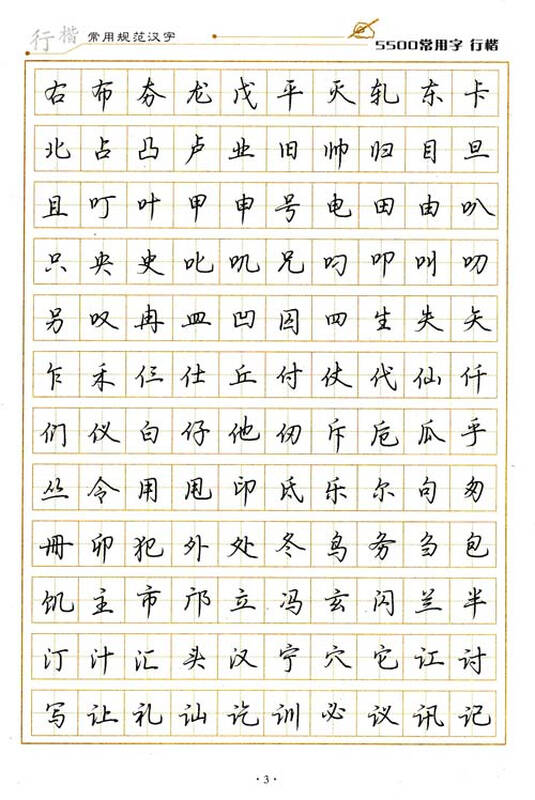 行楷 常用规范汉字
5500常用字 行楷
右布夯龙戊平灭轧东卡
北占凸卢业旧帅归目旦
且叮叶甲申号电田由叭
只央史叱叽兄叼叩叫叻
另叹冉皿凹囚四生失矢
乍禾仨仕丘付仗代仙仟
们仪白仔他仞斥卮瓜乎
丛令用甩印氐乐尔句匆
册卯犯外处冬鸟务刍包
饥主市邝立冯玄闪兰半
汀汁汇头汉宁穴它讧讨
写让礼讪讫训必议讯记
·3·